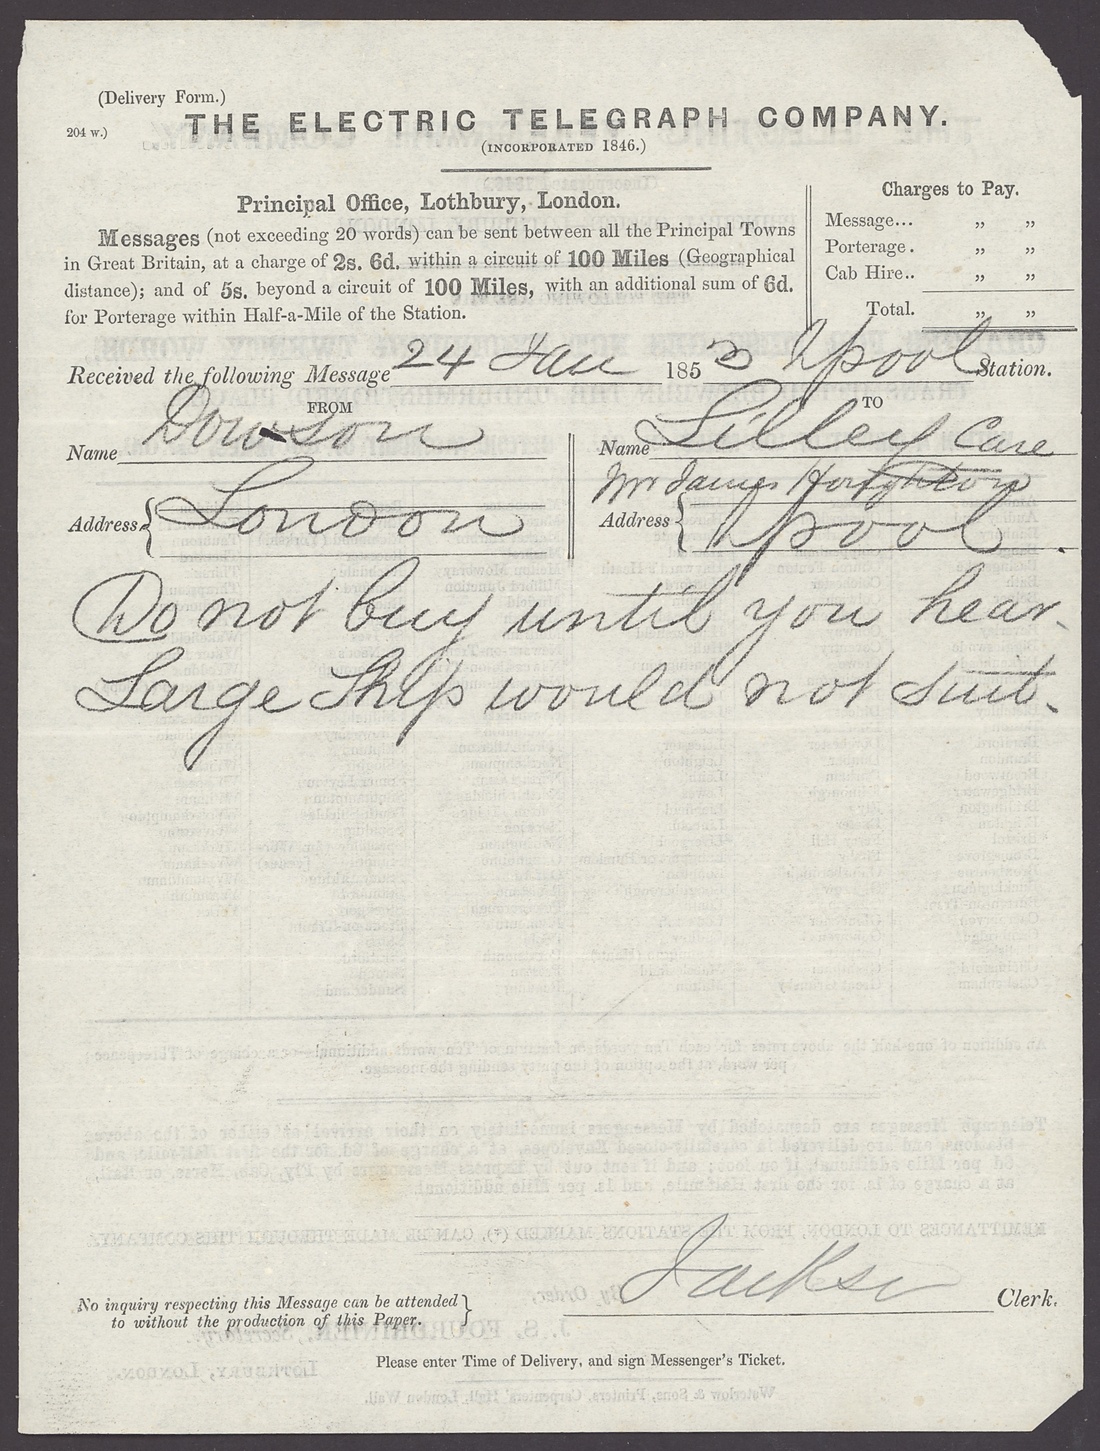 (Delivery Form.)
204 w.)
THE ELECTRIC TELEGRAPH COMPANY.
(INCORPORATED 1846.)
Principal Office, Lothbury, London.
Messages (not exceeding 20 words) can be sent between all the Principal Towns
in Great Britain, at a charge of 2s. 6d. within a circuit of 100 Miles (Geographical
distance); and of 5s. beyond a circuit of 100 Miles, with an additional sum of 6d.
for Porterage within Half-a-Mile of the Station.
Charges to Pay.
Message... „ „
Porterage. „ „
Cab Hire.. „ „
Total. „ „
Received the following Message 24 Jan 1853 Lpool Station.
FROM
Name Dowson
Address London
TO
Name Lilley Care
Mr James Houghton
Address Lpool.
Do not buy until you hear.
Large Ship would not suit.
No inquiry respecting this Message can be attended
to without the production of this Paper.
Jackson Clerk.
Please enter Time of Delivery, and sign Messenger's Ticket.